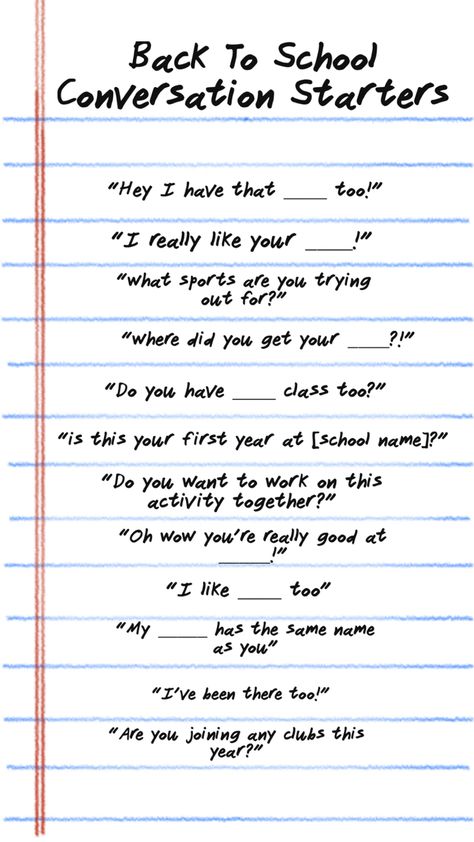 Back To School
Conversation Starters
"Hey I have that ____ too!"
"I really like your _____!"
"what sports are you trying
out for?"
"where did you get your ____?!"
"Do you have ____ class too?"
"is this your first year at [school name]?"
"Do you want to work on this
activity together?"
"Oh wow you're really good at
_____!"
"I like ____ too"
"My _____ has the same name
as you"
"I've been there too!"
"Are you joining any clubs this
year?"